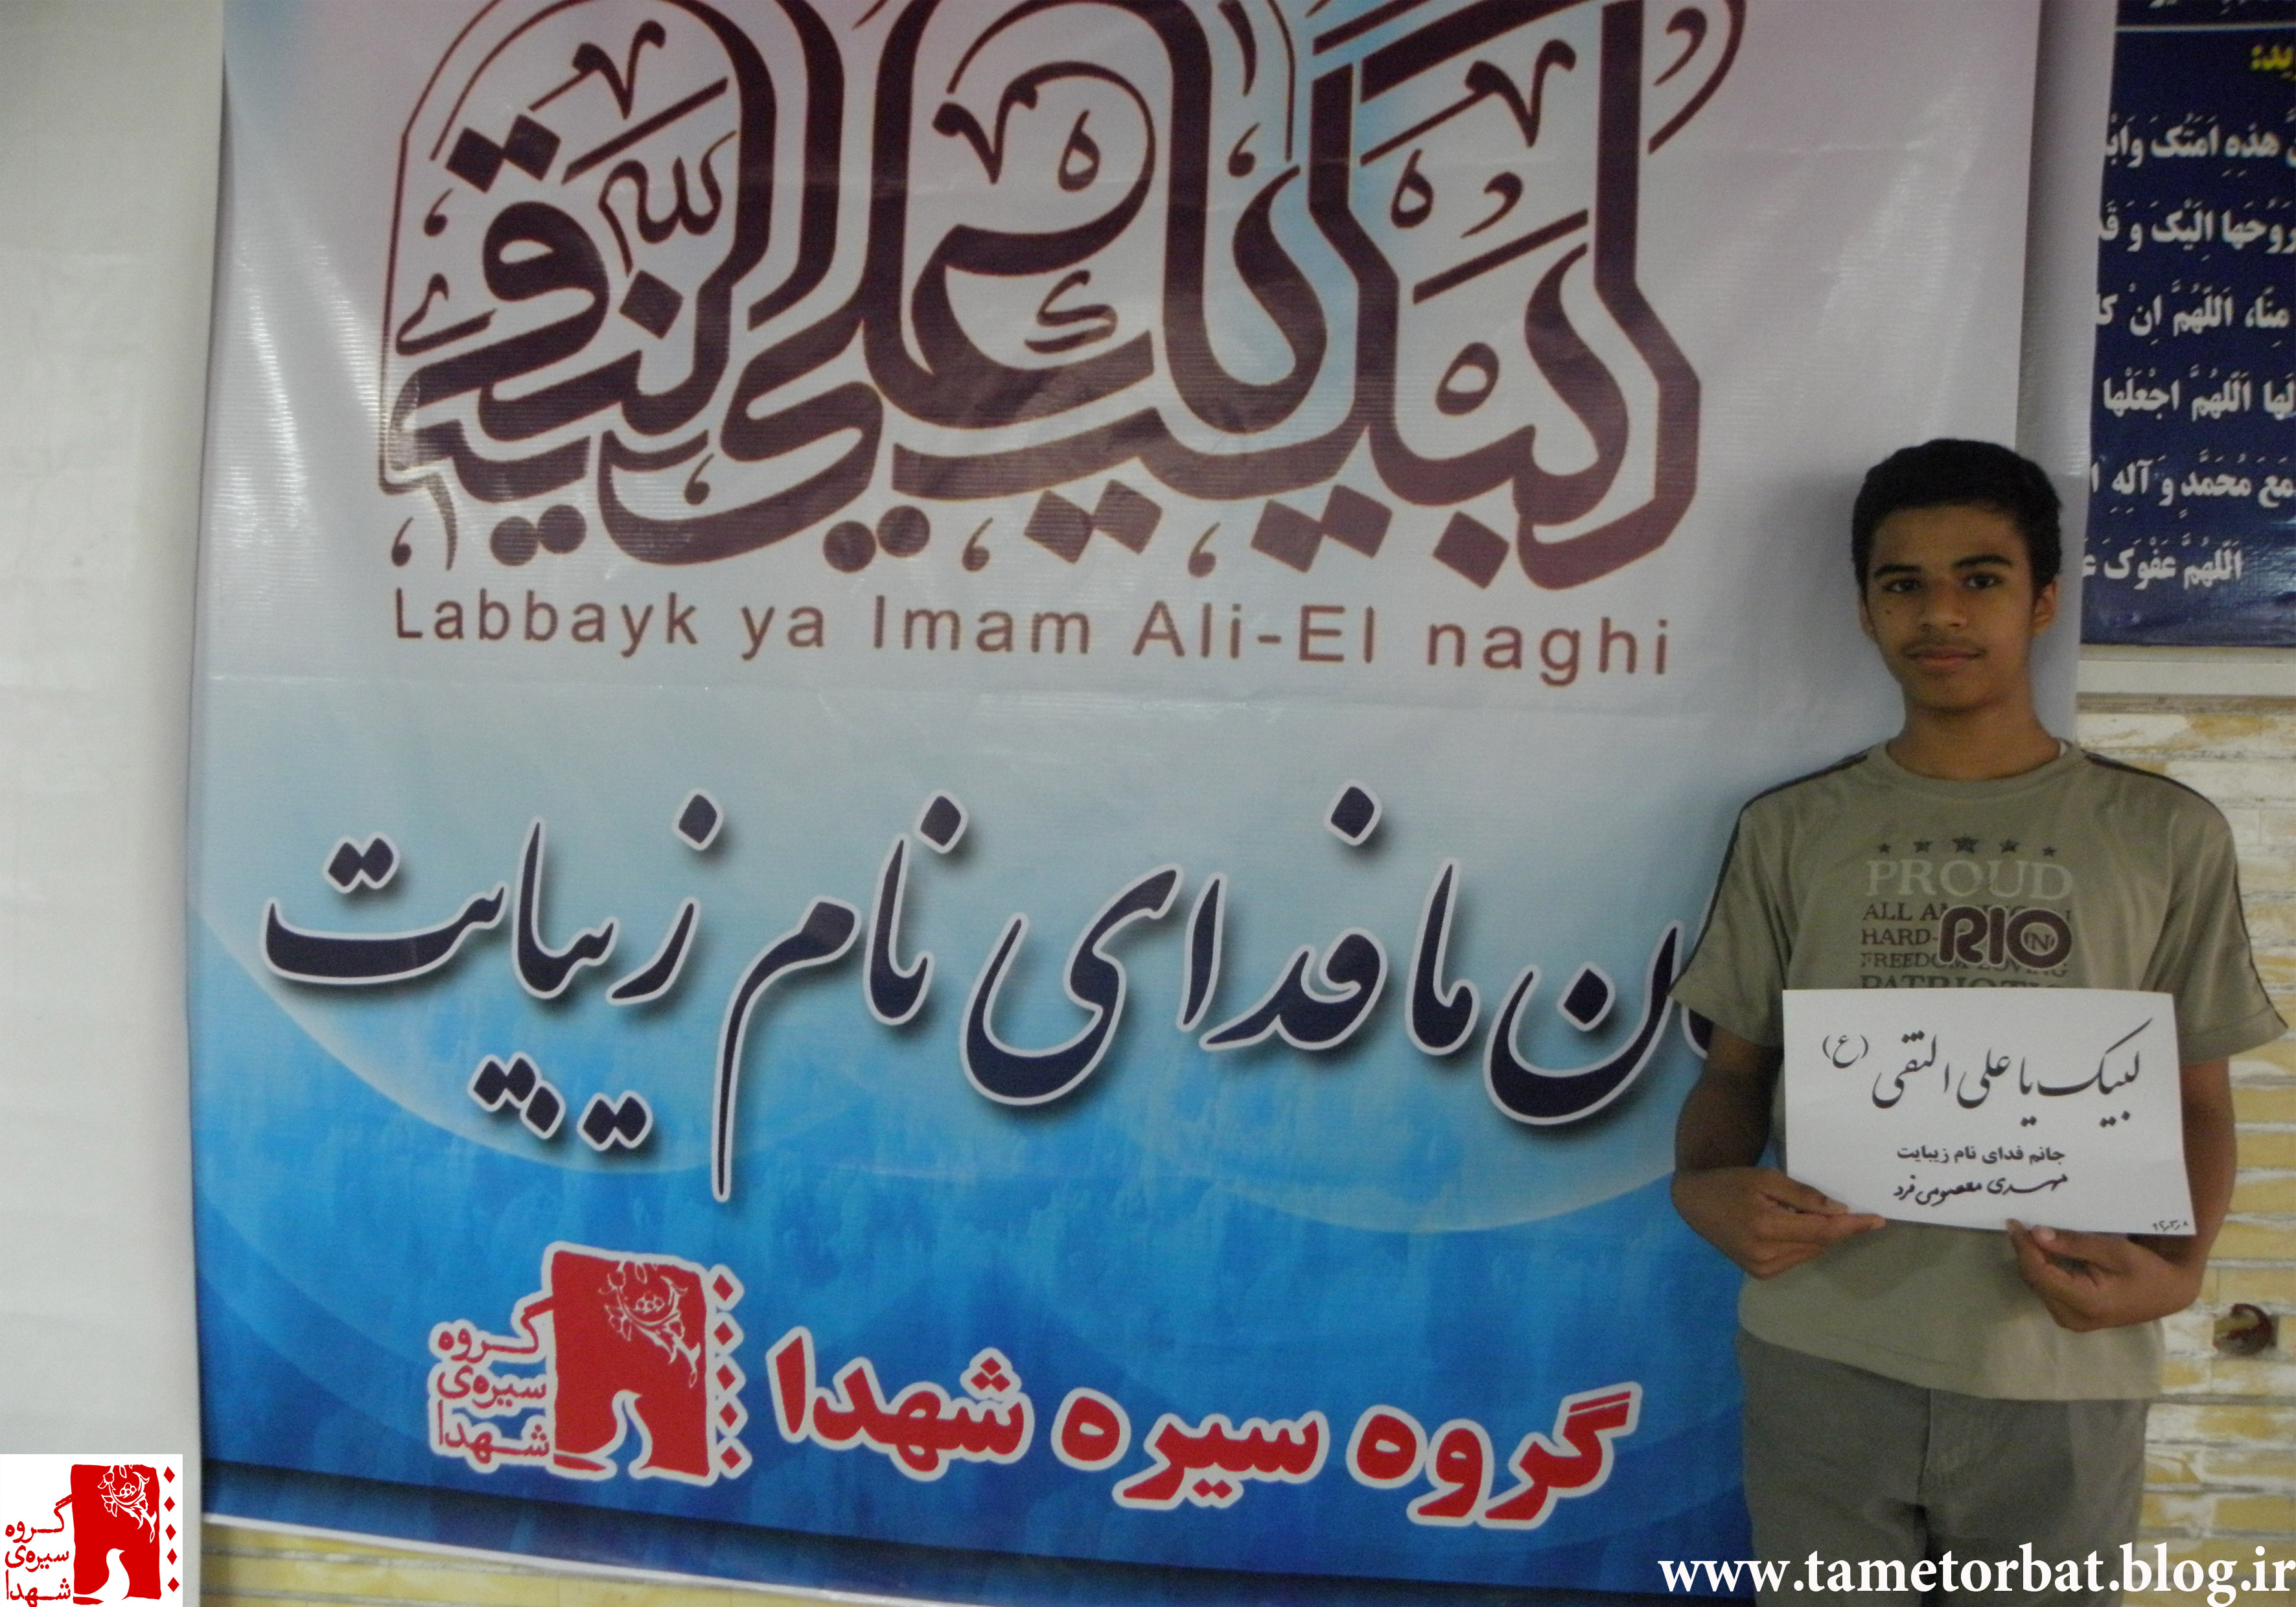 لبیک یا علی النقی
الله
Labbayk ya Imam Ali-El naghi
ما فدای نام زیبایت
گروه
سیره‌ی
شهدا
گروه سیره شهدا
ید:
هذِهِ اَمَتُکَ وَابْ
رُوحَها اِلَیْکَ وَ قَد
مِنّا، اَللّهُمَّ اِنْ کا
لَها اَللّهُمَّ اجْعَلْها
مَعَ مُحَمَّدٍ وَ آلِهِ ا
اَللّهُمَّ عَفْوَکَ عَ
PROUD
ALL
HARD-
RIO
FREEDOM-LOVING
لبیک یا علی النقی (ع)
جانم فدای نام زیبایت
مهدی معصومی فرد
۹۲٫۳٫۸
گروه
سیره‌ی
شهدا
www.tametorbat.blog.ir